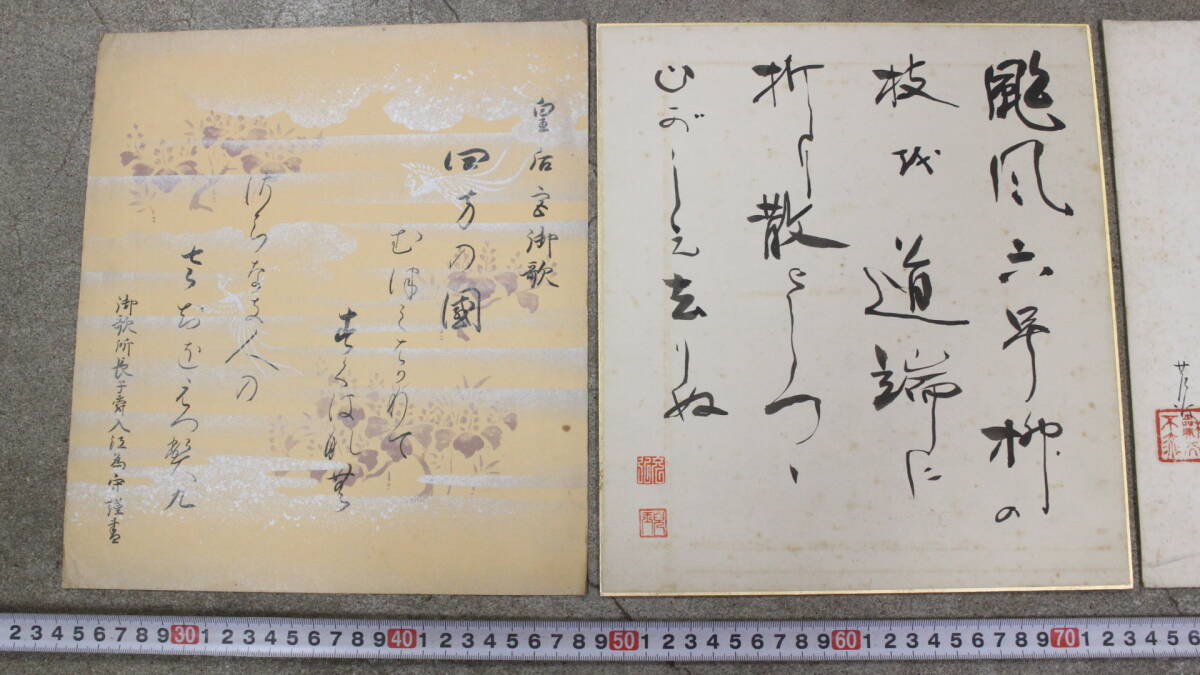 皇后宮御歌
四方の國
む津ミはかりて
春久は那無
沙ちな支人の
御歌所長子爵入江為守謹書
颱風六号柳の
枝を道端に
折り散らしつゝ
ひがしへ去りぬ
2 3 4 5 6 7 8 9 30 1 2 3 4 5 6 7 8 9 40 1 2 3 4 5 6 7 8 9 50 1 2 3 4 5 6 7 8 9 60 1 2 3 4 5 6 7 8 9 70 1 2 3 4 5 6